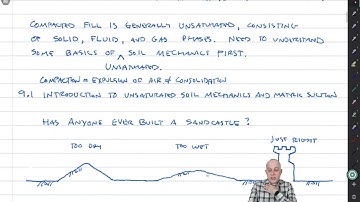 COMPACTED FILL IS GENERALLY UNSATURATED, CONSISTING
OF SOLID, FLUID, AND GAS PHASES. NEED TO UNDERSTAND
SOME BASICS OF ^ SOIL MECHANICS FIRST.
UNSATURATED.
COMPACTION = EXPULSION OF AIR ≠ CONSOLIDATION
9.1 INTRODUCTION TO UNSATURATED SOIL MECHANICS AND MATRIC SUCTION
HAS ANYONE EVER BUILT A SANDCASTLE?
JUST RIGHT
TOO DRY TOO WET